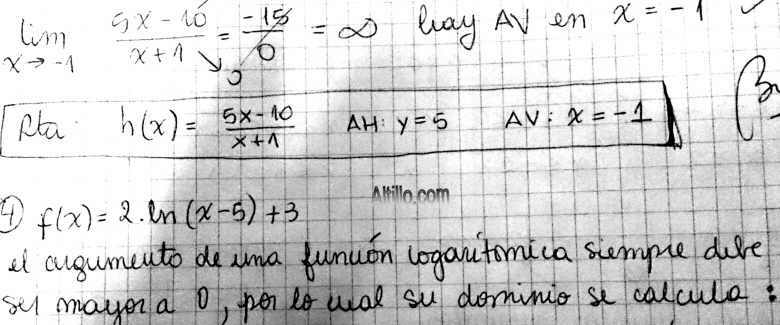 lim x→-1 5x-10 / x+1 = -15 / 0 = ∞ hay AV en x = -1
Rta h(x) = 5x-10 / x+1 AH: y = 5 AV: x = -1
Altillo.com
4) f(x) = 2.ln (x-5) + 3
el argumento de una función logarítmica siempre debe
ser mayor a 0, por lo cual su dominio se calcula :